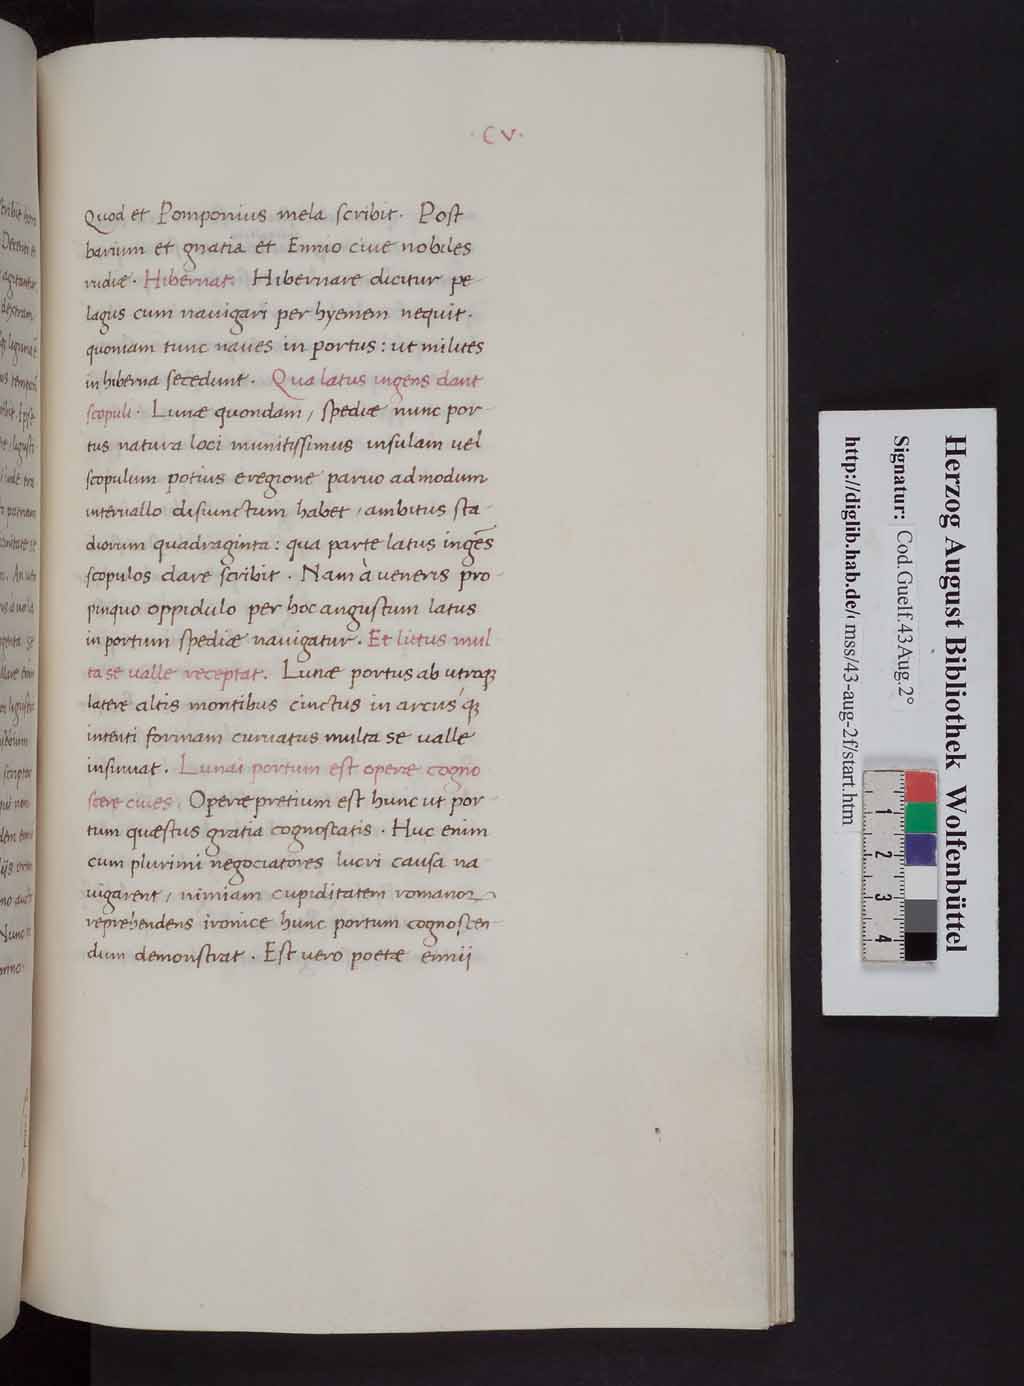 · C V ·
Quod et Pomponius mela scribit. Post
barium et gnatia et Ennio ciue nobiles
rudie. Hibernat. Hibernare dicitur pe-
lagus cum nauigari per hyemem nequit.
quoniam tunc naues in portus: ut milites
in hiberna secedunt. Qua latus ingens dant
scopuli. Lunæ quondam / spediæ nunc por-
tus natura loci munitissimus insulam uel
scopulum potius e regione paruo admodum
interuallo disiunctum habet / ambitus sta-
diorum quadraginta: qua parte latus ingēs
scopulos dare scribit. Nam à ueneris pro-
pinquo oppidulo per hoc angustum latus
in portum spediæ nauigatur. Et littus mul
ta se ualle receptat. Lunæ portus ab utroq3
latere altis montibus cinctus in arcus'q3
intenti formam curuatus multa se ualle
insinuat. Lunai portum est operæ cogno
scere ciues. Operæpretium est hunc ut por-
tum quæstus gratia cognoscatis. Huc enim
cum plurimi negociatores lucri causa na-
uigarent / nimiam cupiditatem romanoꝝ
reprehendens ironice hunc portum cognoscen-
dum demonstrat. Est uero poetæ ennii
Herzog August Bibliothek Wolfenbüttel
Signatur: Cod.Guelf.43 Aug.2°
http://diglib.hab.de/ mss/43-aug-2f/start.htm
1 2 3 4